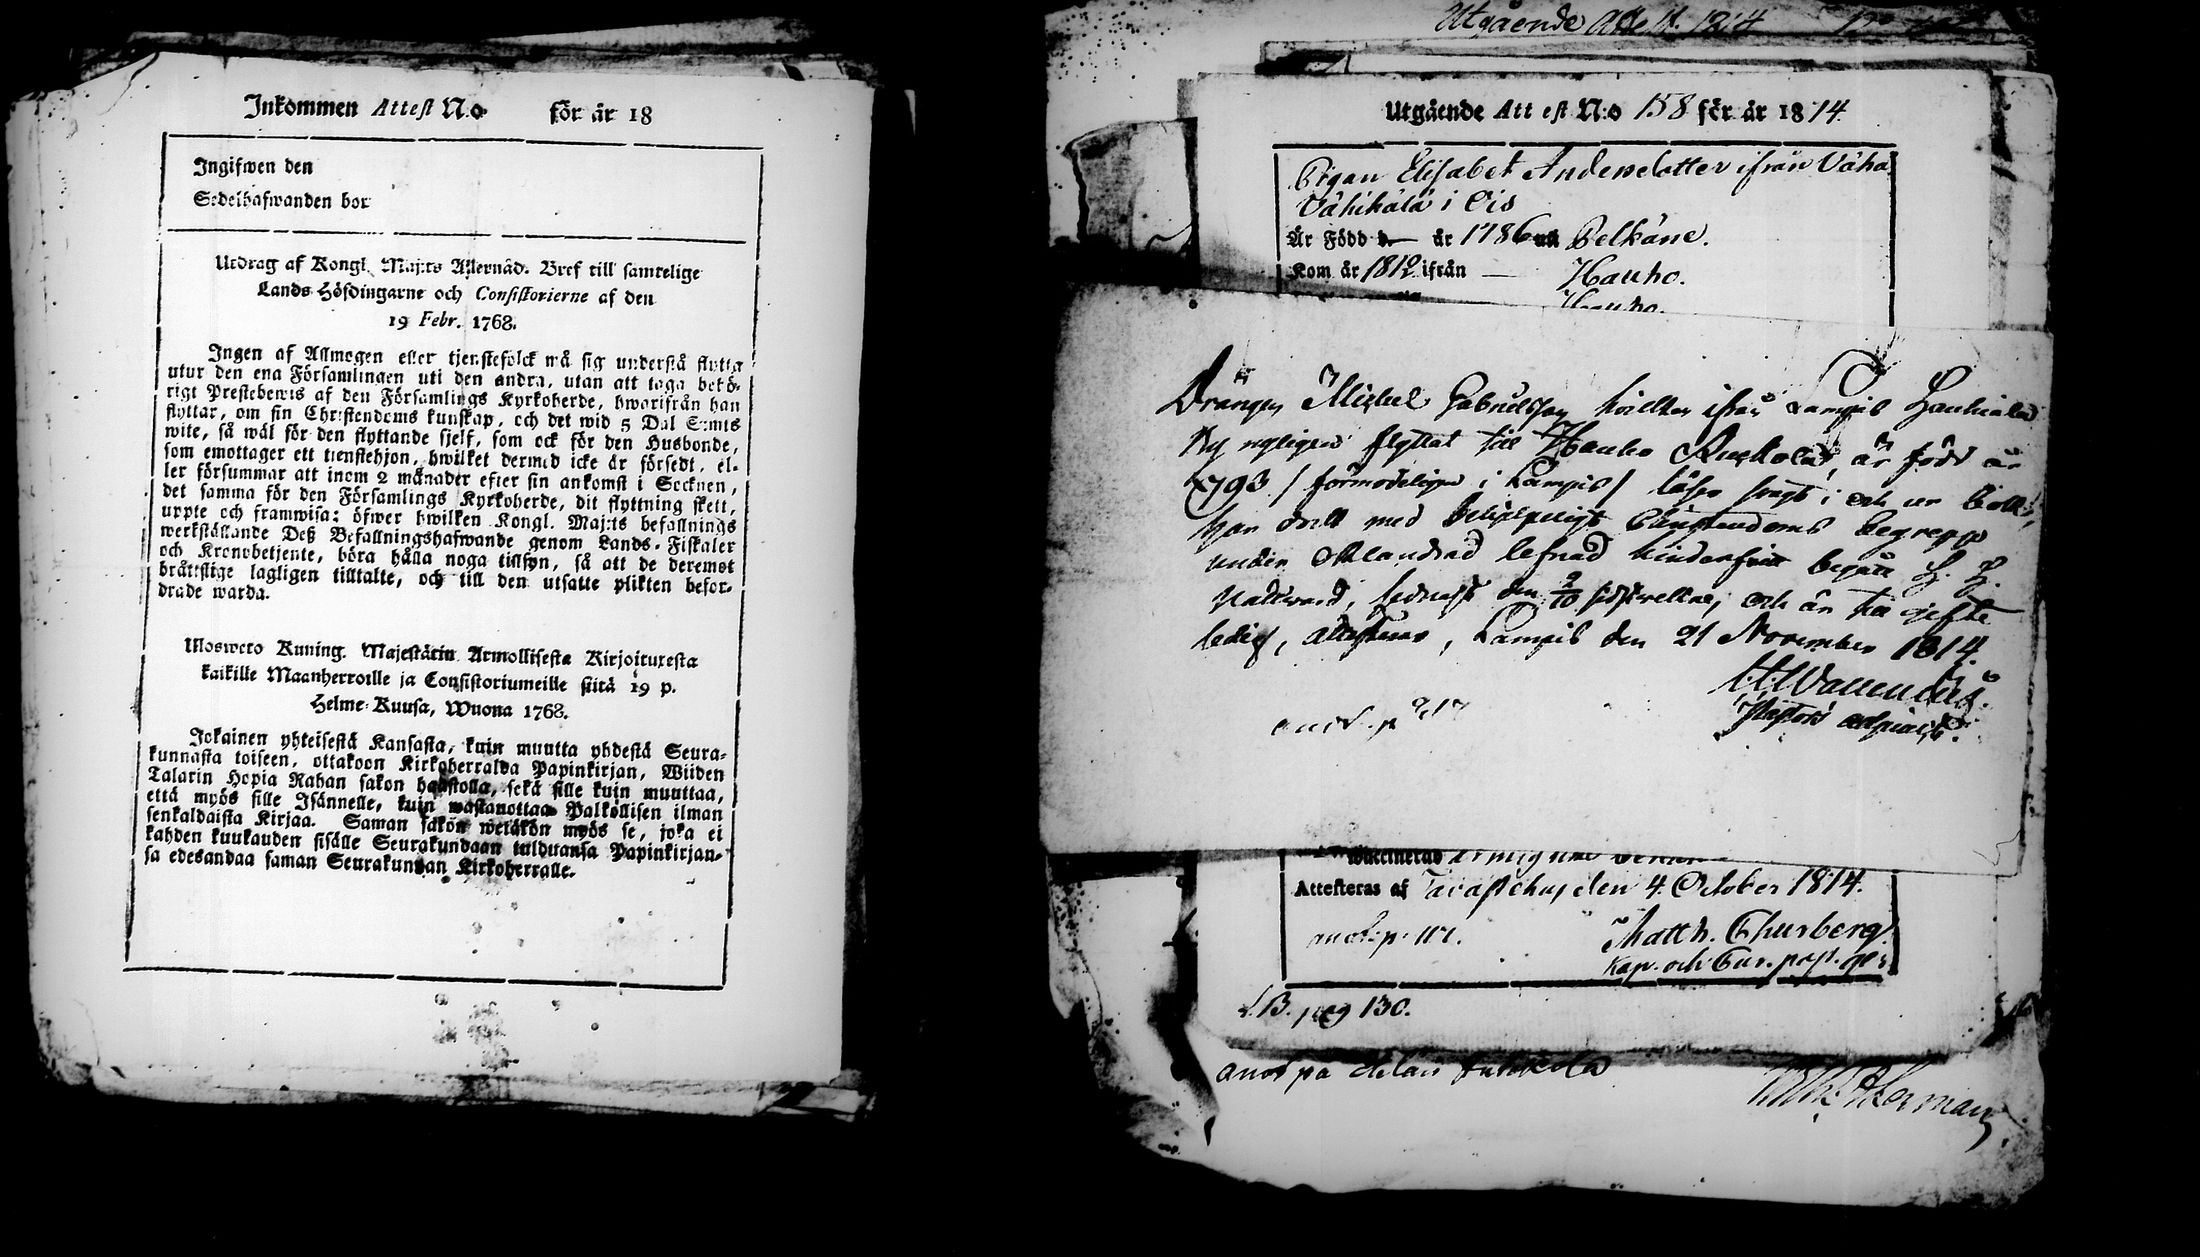 Inkommen Attest N:o för år 18
Ingifwen den
Sedelhafwanden bor
Utdrag af Kongl. Maj:ts Allernåd. Bref till samtelige
Lands-Höfdingarne och Consistorierne af den
19 Febr. 1768.
Ingen af Allmogen eller tjenstefolck må sig understå flytta
utur den ena Församlingen uti den andra, utan att taga behö-
rigt Prestebewis af den Församlings Kyrkoherde, hworifrån han
flyttar, om sin Christendoms kunskap, och det wid 5 Dal S:mts
wite, så wäl för den flyttande sjelf, som ock för den Husbonde,
som emottager ett tienstehjon, hwilket dermed icke är försedt, el-
ler försummar att inom 2 månader efter sin ankomst i Socknen,
det samma för den Församlings Kyrkoherde, dit flyttning skett,
uppte och framwisa: öfwer hwilken Kongl. Maj:ts befallnings
werkställande Deß Befallningshafwande genom Lands-Fiskaler
och Kronobetjente, böra hålla noga tillsyn, så att de deremot
bråttslige lagligen tilltalte, och till den utsatte plikten befor-
drade warda.
Ulosweto Kuning. Majestätin Armollisesta Kirjoituxesta
kaikille Maanherroille ja Consistoriumeille siitä 19 p.
Helme-Kuusa, Wuona 1768.
Jokainen yhteisestä Kansasta, kuin muutta yhdestä Seura-
kunnasta toiseen, ottakoon Kirkoherralda Papinkirjan, Wiiden
Talarin Hopia Rahan sakon haastolla, sekä sille kuin muuttaa,
että myös sille Isännelle, kuin wastanottaa Palkollisen ilman
senkaldaista Kirjaa. Saman sakon wetäkön myös se, joka ei
kahden kuukauden sisälle Seurakundaan tulduansa Papinkirjan-
sa edesandaa saman Seurakunnan Kirkoherralle.
Utgående Attest. 1814
Utgående Attest N:o 158 för år 1814.
Pigan Elisabet Andersdotter ifrån Vähä
Vähikälä i Ois
Är Född år 1786 uti Pelkäne.
Kom år 1812 ifrån — Hauho.
Hauho.
Drängen Michel Gabrielsson hvilken ifrån Lampis
By nyligen flyttat till Hauho är född år
1793 / förmodeligen i Lampis / läser svagt i och ur Bok,
har ock med Christendoms Begrepp
under oklandrad lefnad hinderfritt begått H. H.
Nattvard, sednast den 2/10 sistvekne, och är till gifte
ledig, attesteras, Lampis den 21 November 1814.
Pastors adjunct.
anot. p 217
Vaccinerad
Attesteras af Tavastehus den 4 October 1814.
anot: p. 117. Matth. Churberg.
Kap. och Cur. past. ger.
L.B. pag 130.
anot på